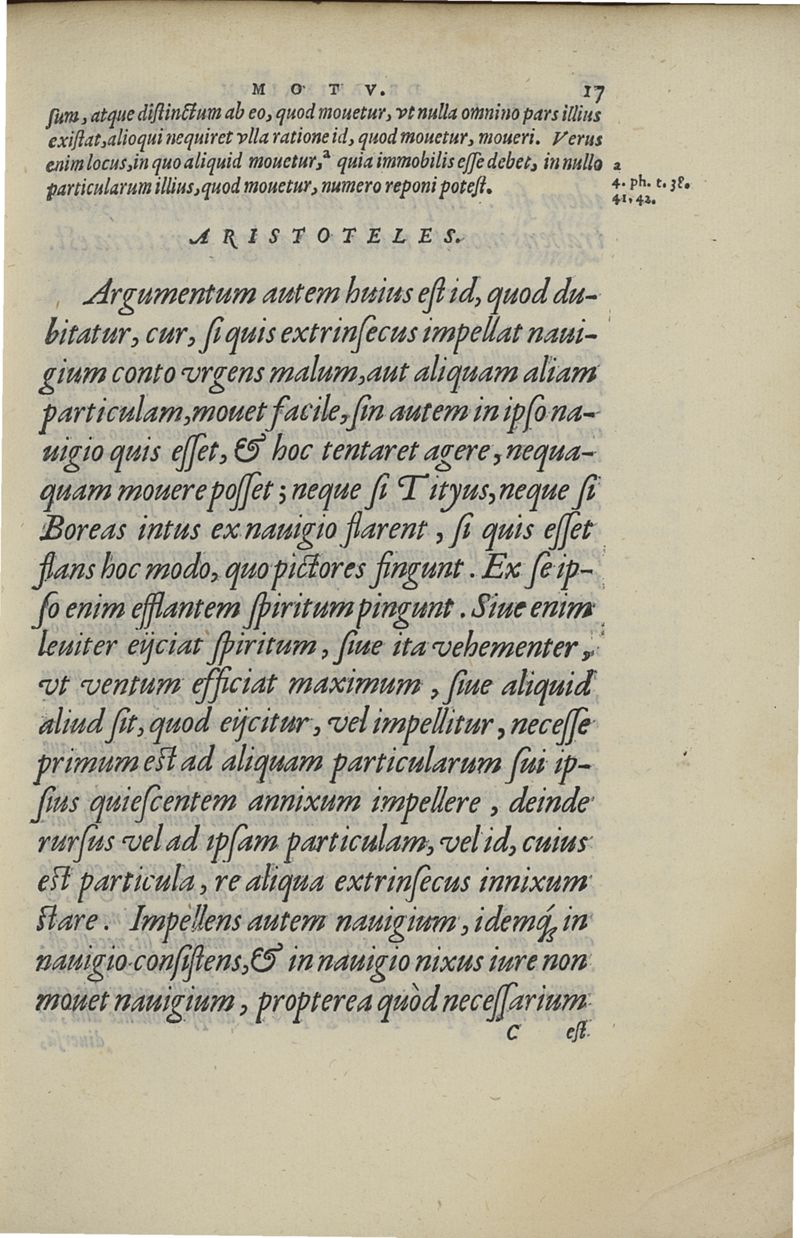 MOTV. 17
ſum, atque diſtinctum ab eo, quod mouetur, vt nulla omnino pars illius
exiſtat, alioqui nequiret vlla ratione id, quod mouetur, moueri. Verus
enim locus, in quo aliquid mouetur,ᵃ quia immobilis eſſe debet, in nullo
particularum illius, quod mouetur, numero reponi poteſt.
a
4. ph. t. 38.
41. 42.
ARISTOTELES.
Argumentum autem huius eſt id, quod du-
bitatur, cur, ſi quis extrinſecus impellat naui-
gium conto vrgens malum, aut aliquam aliam
particulam, mouet facile, ſin autem in ipſo na-
uigio quis eſſet, & hoc tentaret agere, nequa-
quam mouere poſſet; neque ſi Tityus, neque ſi
Boreas intus ex nauigio flarent, ſi quis eſſet
flans hoc modo, quo pictores fingunt. Ex ſe ip-
ſo enim efflantem ſpiritum pingunt. Siue enim
leuiter eijciat ſpiritum, ſiue ita vehementer,
vt ventum efficiat maximum, ſiue aliquid
aliud ſit, quod eijcitur, vel impellitur, neceſſe
primum eſt ad aliquam particularum ſui ip-
ſius quieſcentem annixum impellere, deinde
rurſus vel ad ipſam particulam, vel id, cuius
eſt particula, re aliqua extrinſecus innixum
ſtare. Impellens autem nauigium, idemq́; in
nauigio conſiſtens, & in nauigio nixus iure non
mouet nauigium, propterea quòd neceſſarium
C eſt